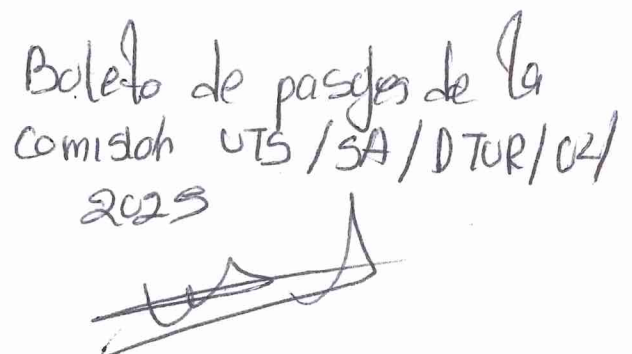 Boleto de pasajes de la
Comisión UTS/SA/DTUR/04/
2025